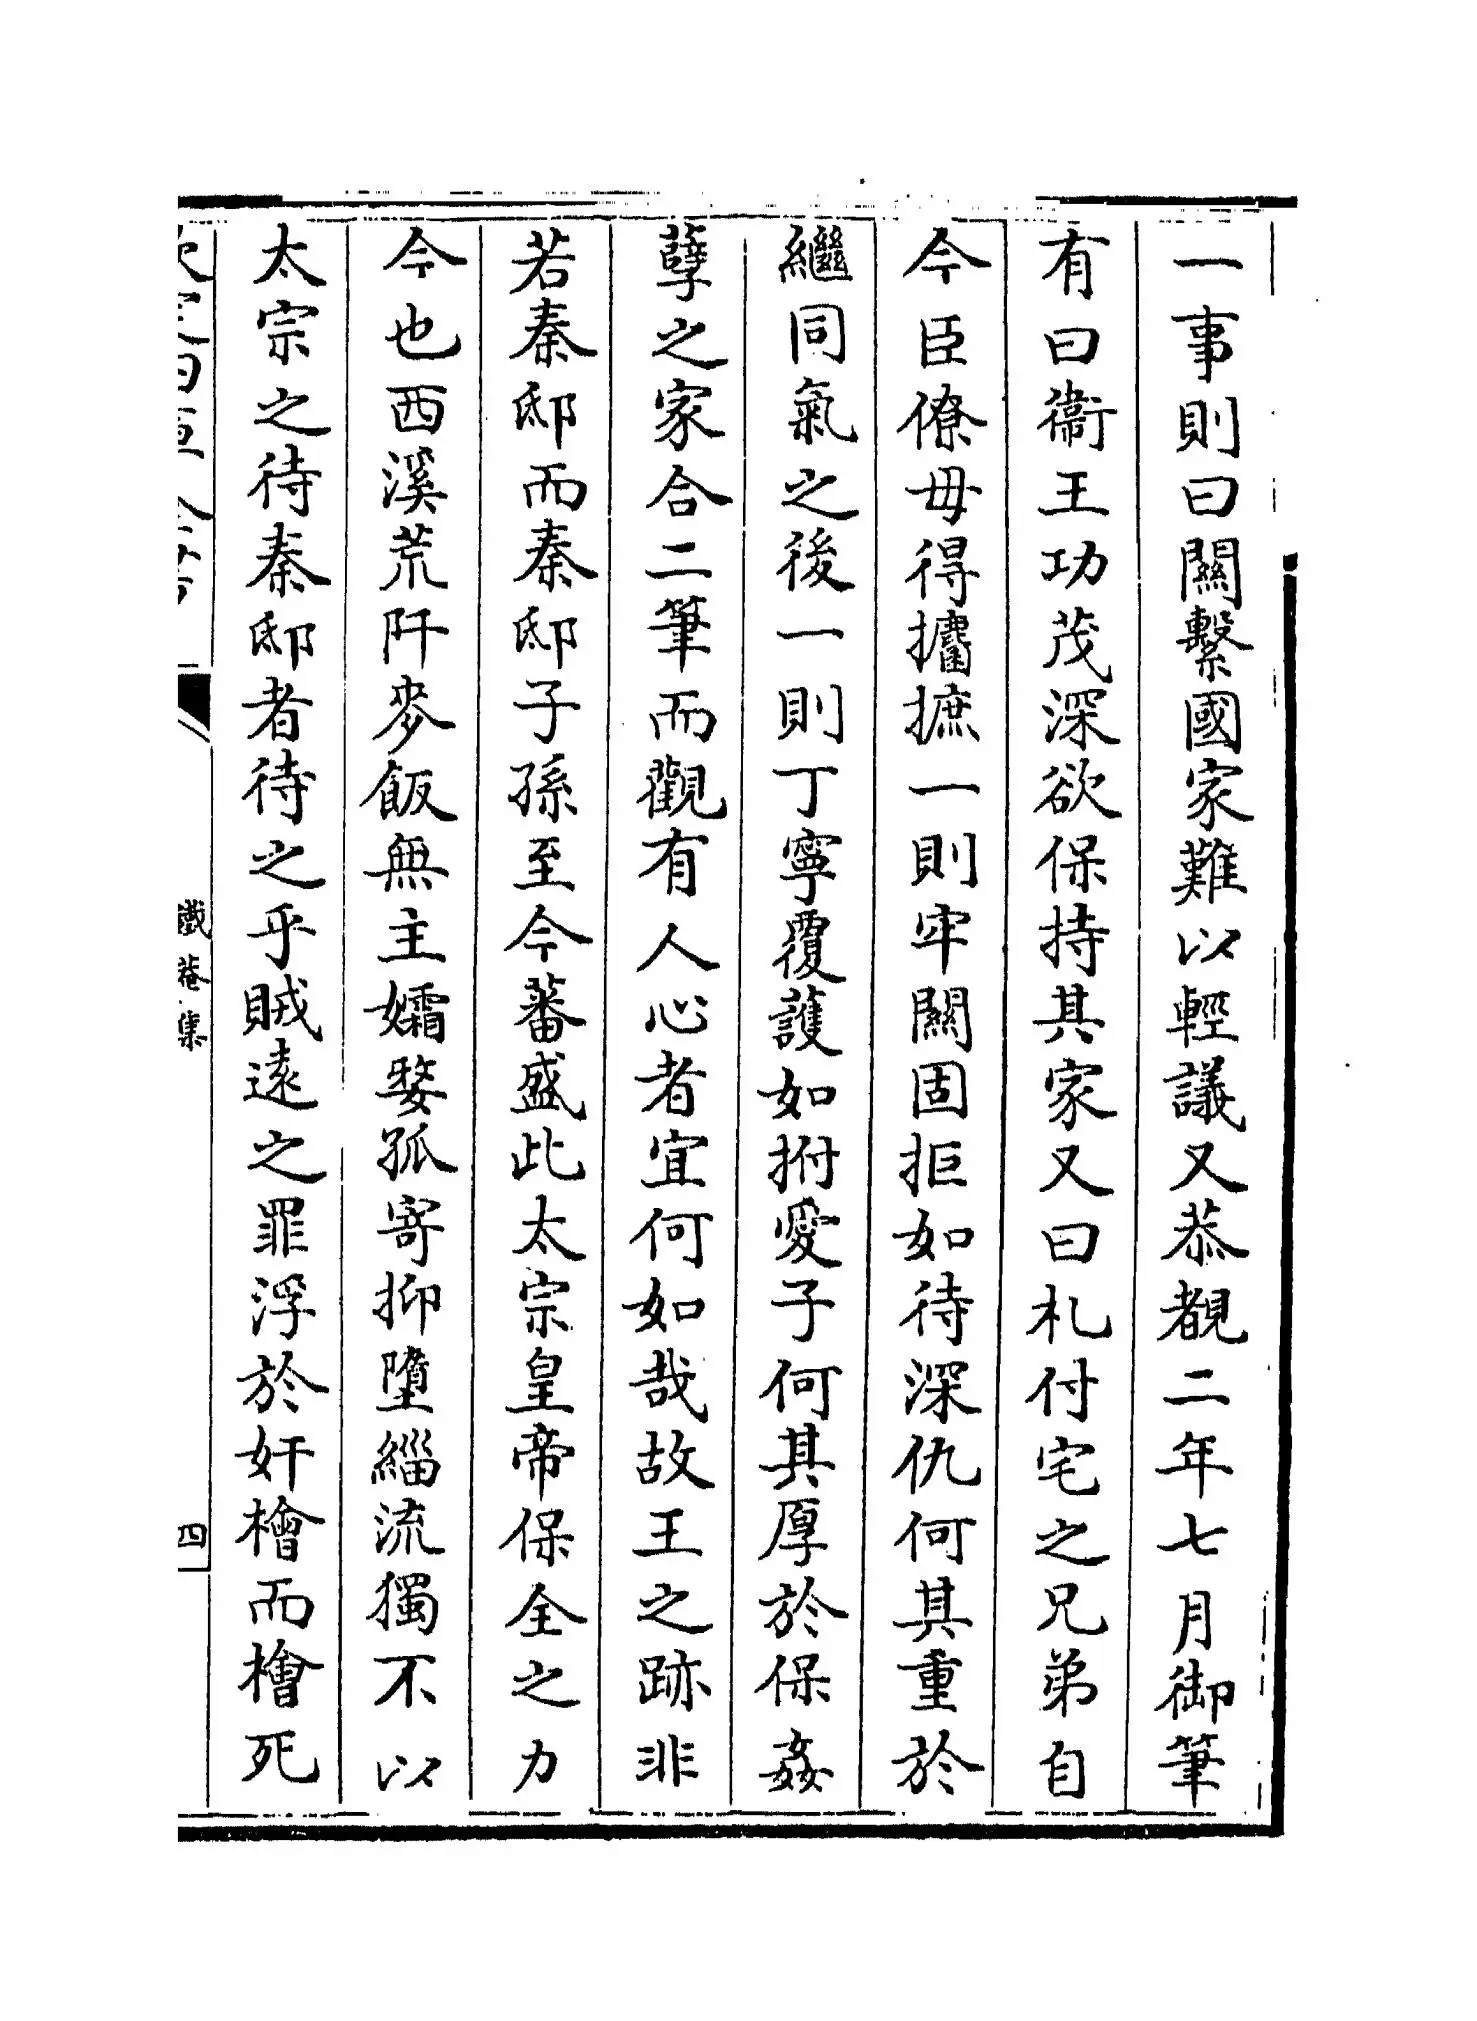 一事則曰關繫國家難以輕議又恭覩二年七月御筆
有曰衞王功茂深欲保持其家又曰札付宅之兄弟自
今臣僚毋得攟摭一則牢關固拒如待深仇何其重於
繼同氣之後一則丁寧覆護如拊愛子何其厚於保姦
孽之家合二筆而觀有人心者宜何如哉故王之跡非
若秦邸而秦邸子孫至今蕃盛此太宗皇帝保全之力
今也西溪荒阡麥飯無主孀婺孤寄抑墮緇流獨不以
太宗之待秦邸者待之乎賊遠之罪浮於奸檜而檜死
欽定四庫全書
鐵菴集
四